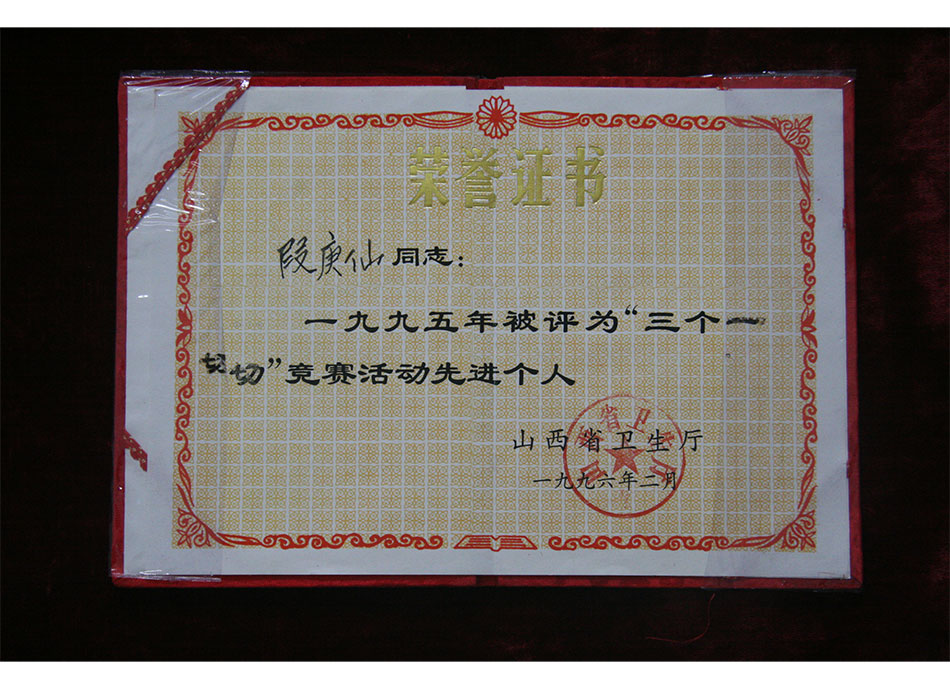 荣誉证书
段庚仙同志：
一九九五年被评为“三个一
切切”竞赛活动先进个人
山西省卫生厅
一九九六年二月